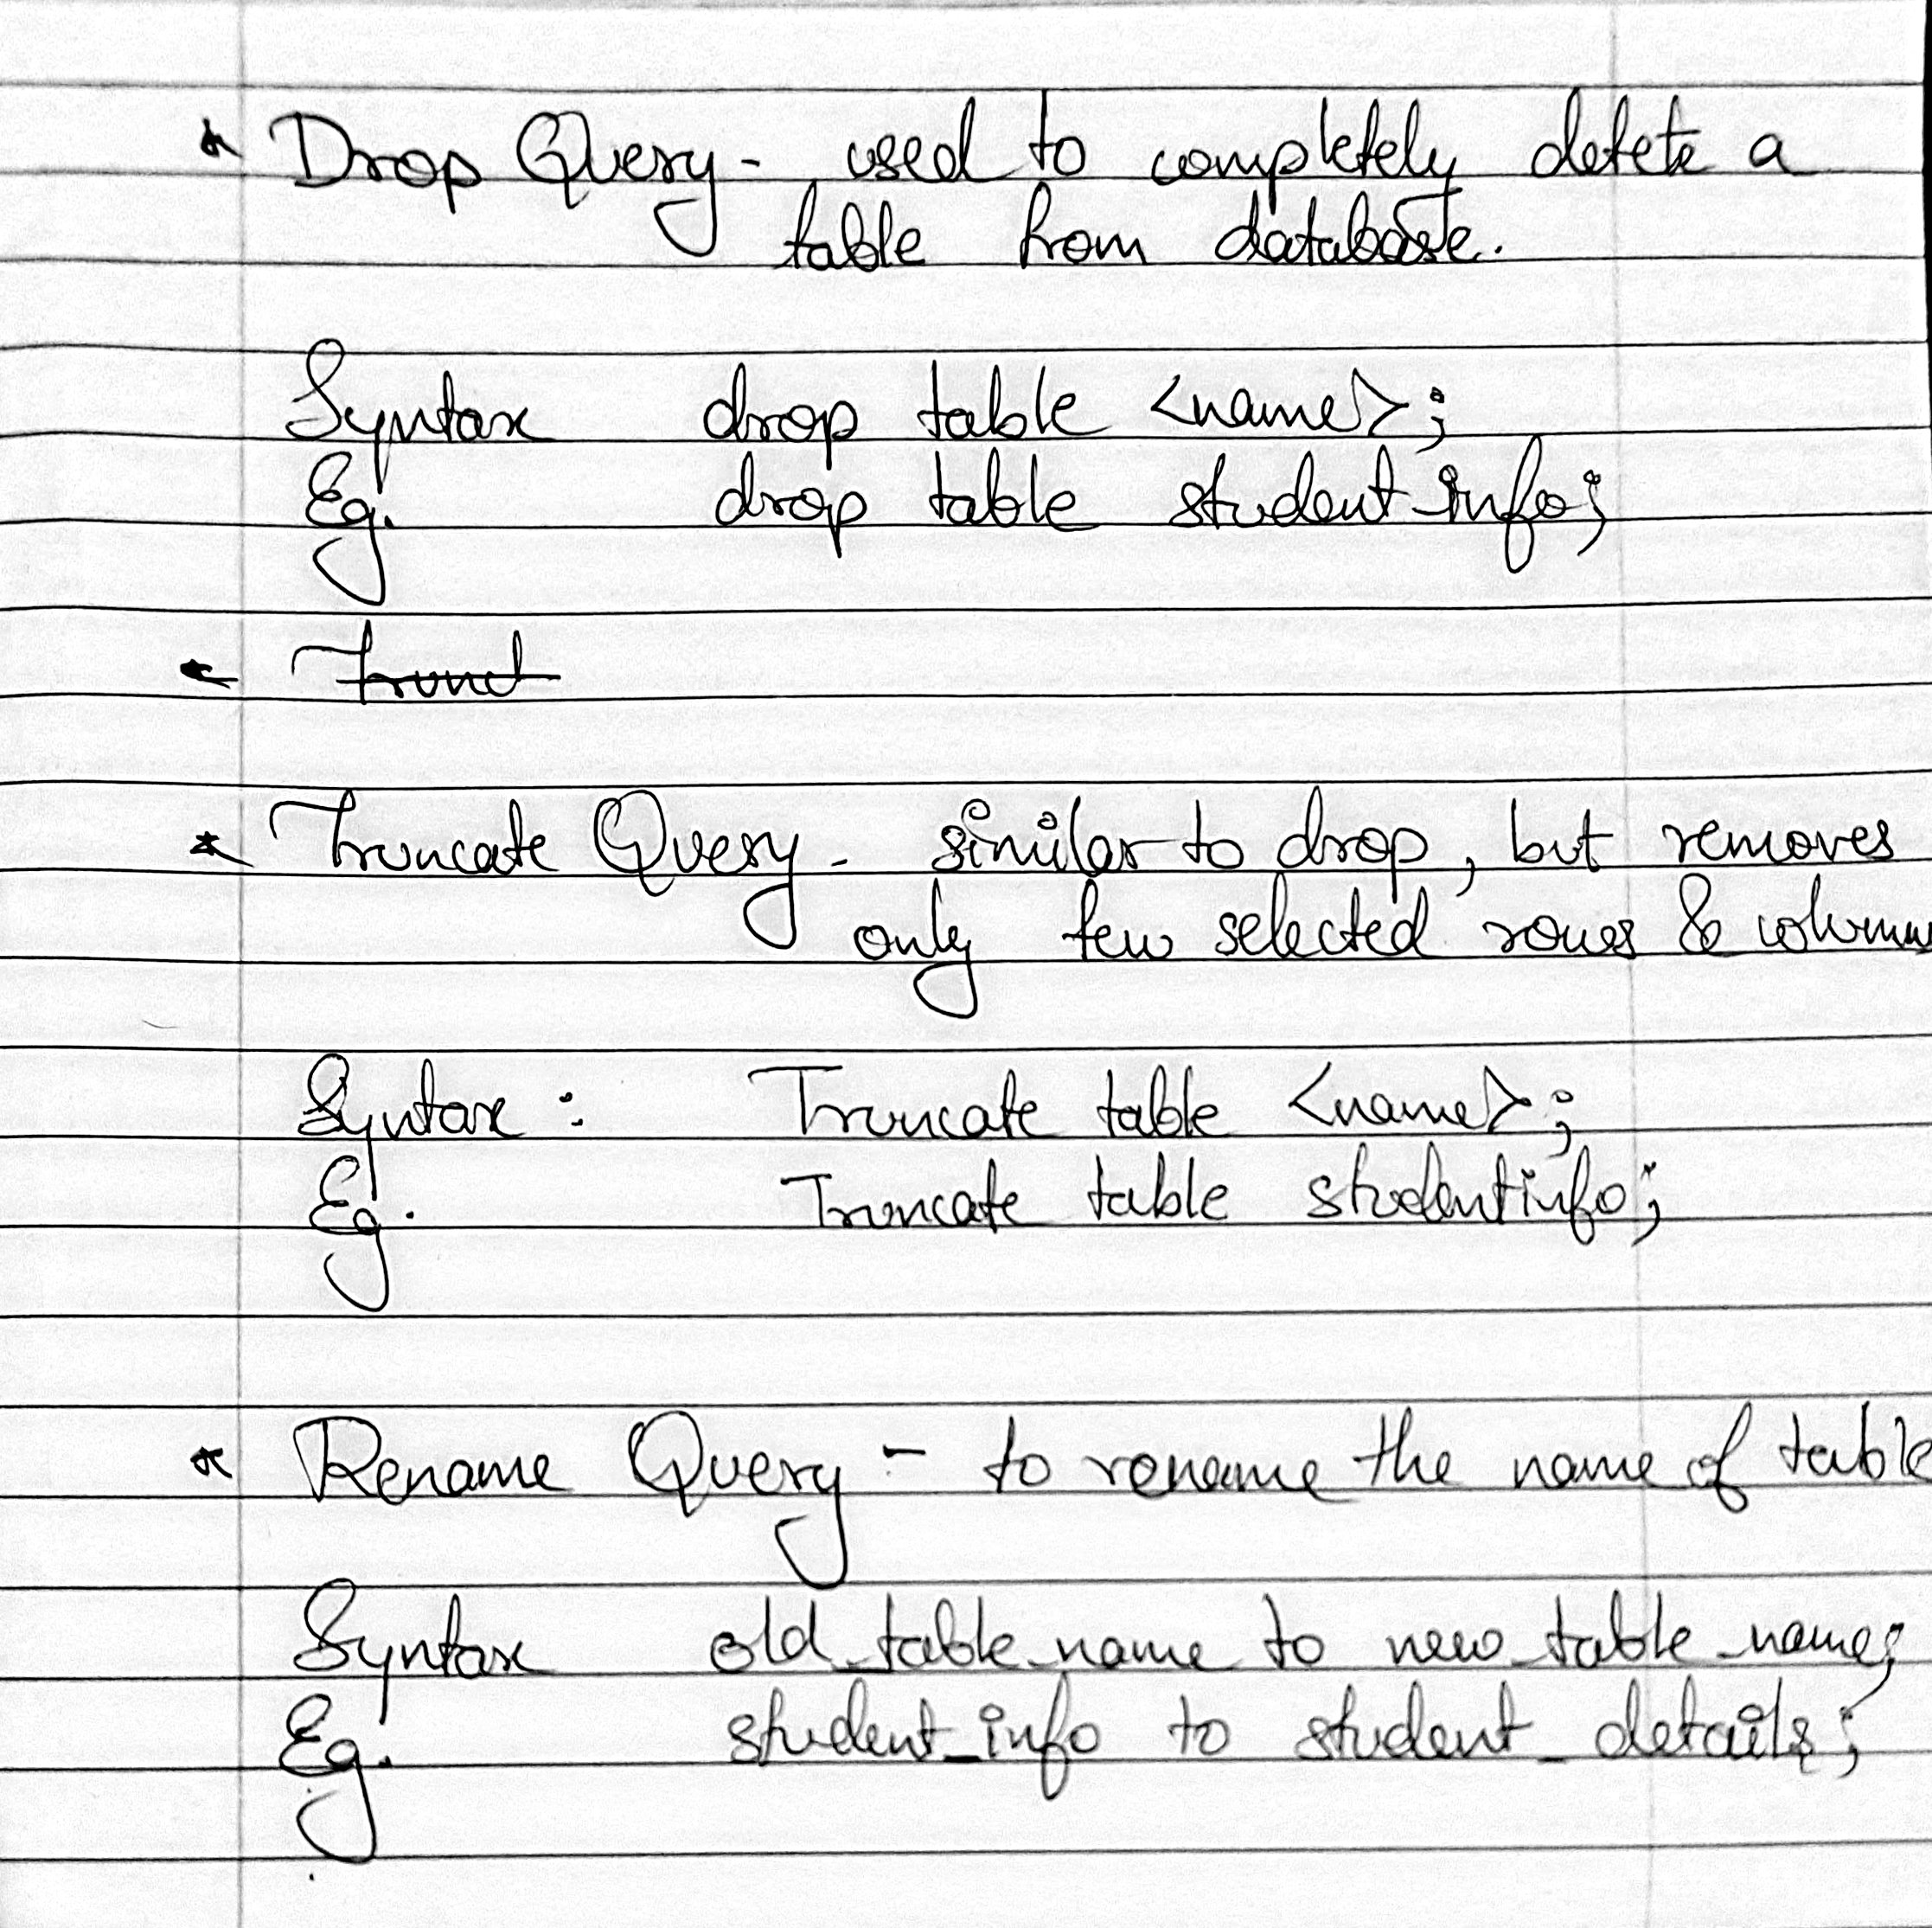 * Drop Query - used to completely delete a
table from database.
Syntax drop table <name>;
Eg. drop table student_info;
* Trunct
* Truncate Query - similar to drop, but removes
only few selected rows & columns
Syntax : Truncate table <name>;
Eg. Truncate table studentinfo;
* Rename Query - to rename the name of table
Syntax old_table_name to new_table_name;
Eg. student_info to student_details;